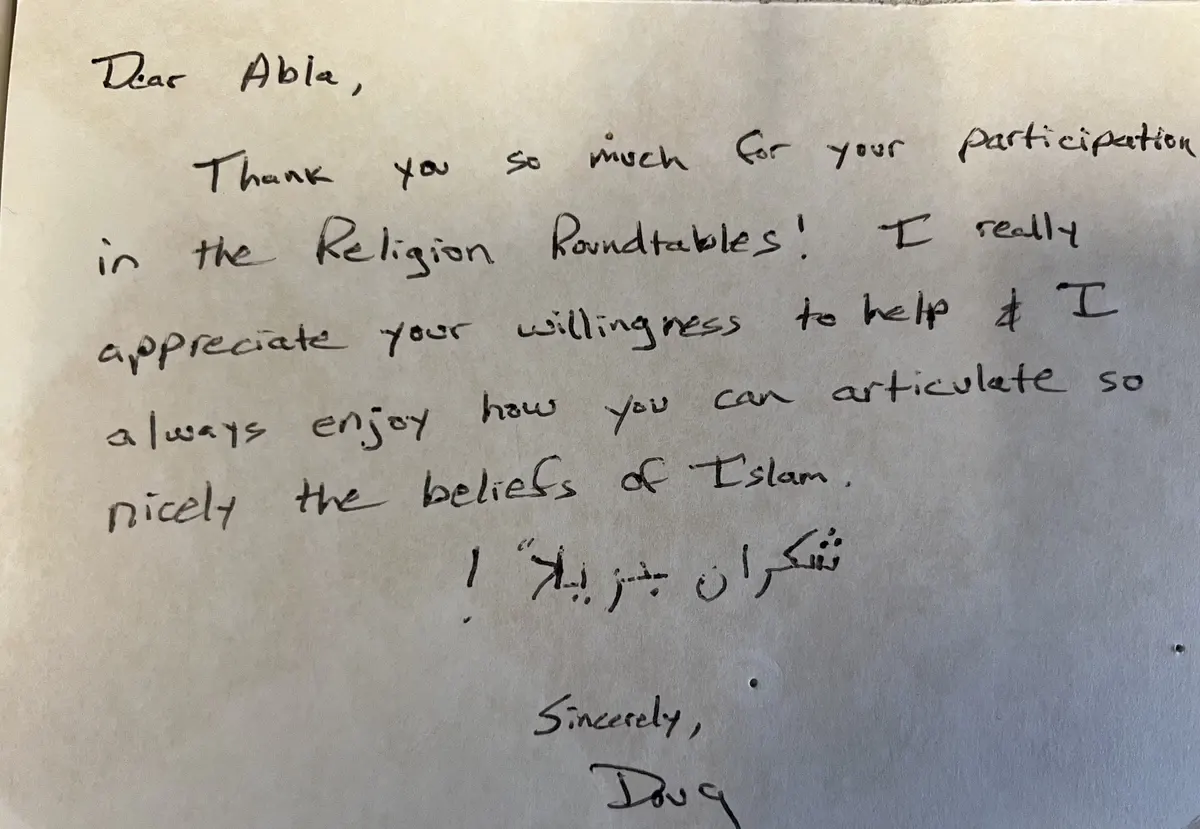 Dear Abla,
Thank you so much for your participation
in the Religion Roundtables! I really
appreciate your willingness to help & I
always enjoy how you can articulate so
nicely the beliefs of Islam.
شكران جزيلاً !
Sincerely,
Doug